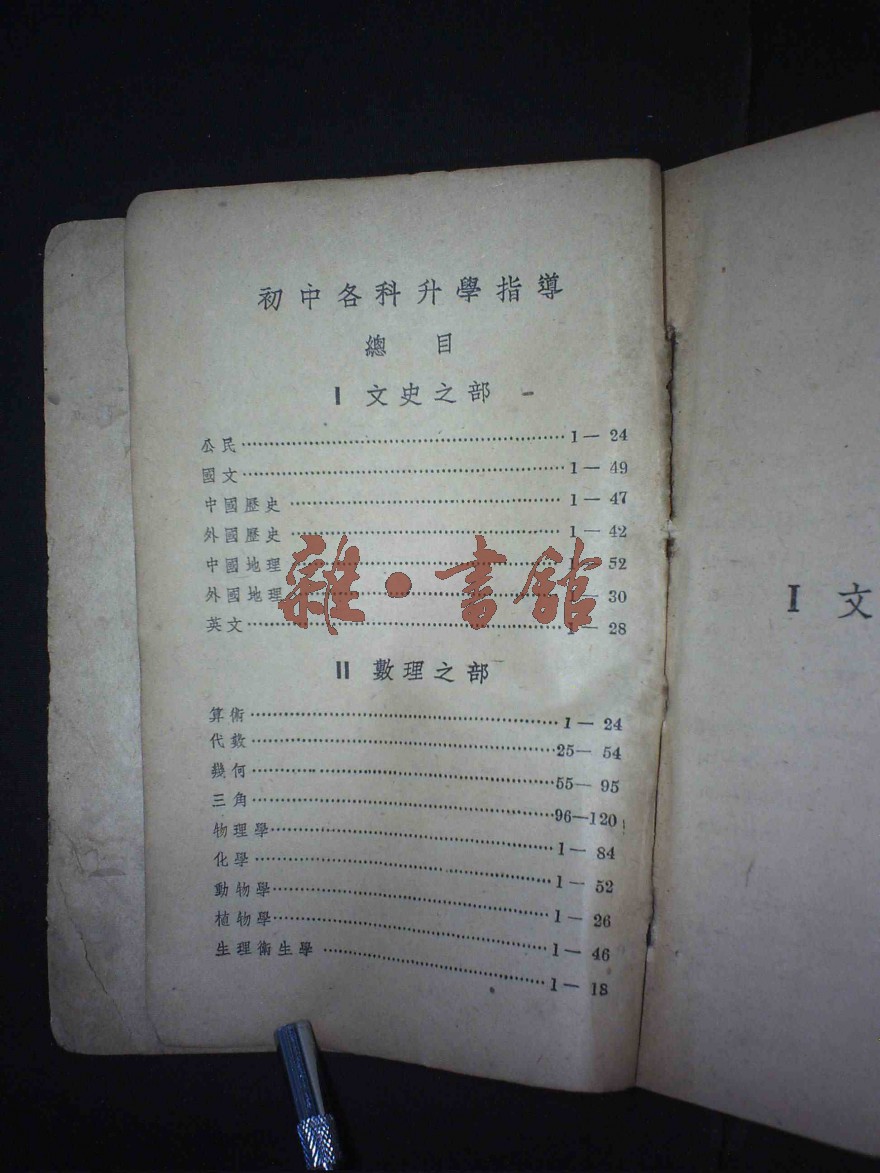 初中各科升學指導
總目
I 文史之部
公民 1— 24
國文 1— 49
中國歷史 1— 47
外國歷史 1— 42
中國地理 1— 52
外國地理 — 30
英文 1— 28
II 數理之部
算術 1— 24
代數 25— 54
幾何 55— 95
三角 96—120
物理學 1— 84
化學 1— 52
動物學 1— 26
植物學 1— 46
生理衛生學 1— 18
雜·書館
I 文